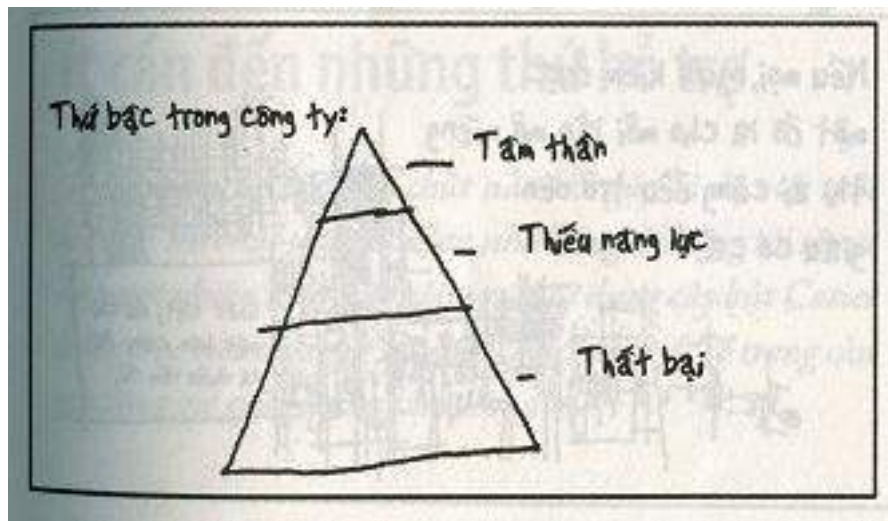 Thứ bậc trong công ty:
Tâm thần
Thiếu năng lực
Thất bại